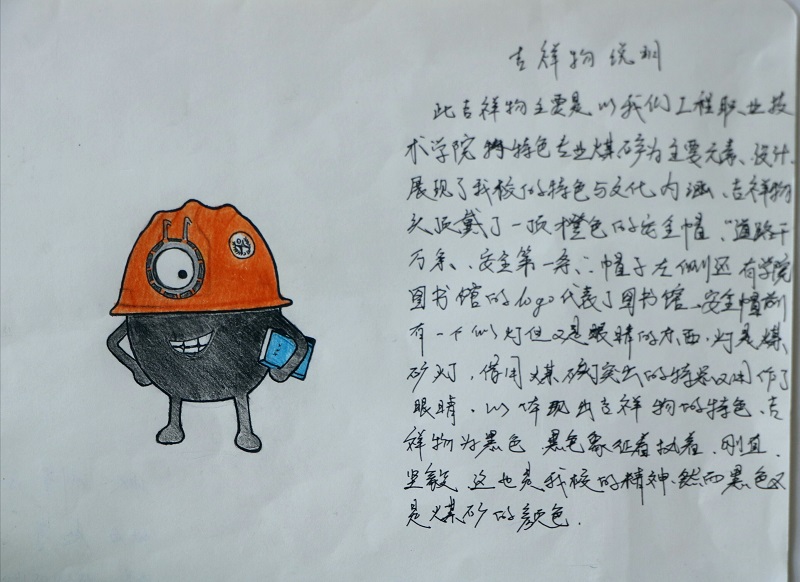 吉祥物说明
此吉祥物主要是以我们工程职业技
术学院特色专业煤矿为主要元素、设计、
展现了我校的特色与文化内涵、吉祥物
头顶戴了一顶橙色的安全帽、“道路千
万条、安全第一条”帽子左侧还有学院
图书馆的logo代表了图书馆、安全帽前
有一个似灯但又是眼睛的东西,灯是煤
矿灯,借用煤矿灯突出的特又用作了
眼睛.以体现出吉祥物的特色.吉
祥物为黑色 黑色象征着执着.刚直.
坚毅 这也是我校的精神.然而黑色又
是煤矿的颜色.